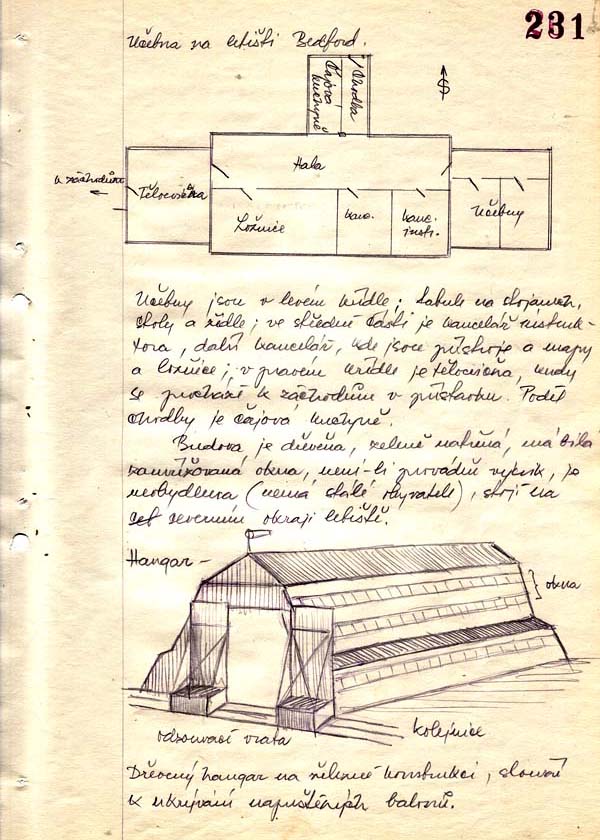 231
Učebna na letišti Bedford.
Čajová
kuchyně
Chodba
Hala
k záchodům
Tělocvična
Ložnice
kanc.
kanc.
instr.
Učebny
Učebny jsou v levém křídle; tabule na stojanech,
stoly a židle; ve střední části je kancelář instruk-
tora, další kancelář, kde jsou přístroje a mapy
a ložnice; v pravém křídle je tělocvična, kudy
se prochází k záchodům v přístavku. Podél
chodby je čajová kuchyně.
Budova je dřevěná, zeleně natřená, má bílá
zamřížovaná okna, není-li prováděn výcvik, je
neobydlena (nemá stálé obyvatele), stojí na
severním okraji letiště.
Hangar –
okna
odsouvací vrata
kolejnice
Dřevěný hangar na železné konstrukci, slouží
k ukrývání napuštěných balonů.